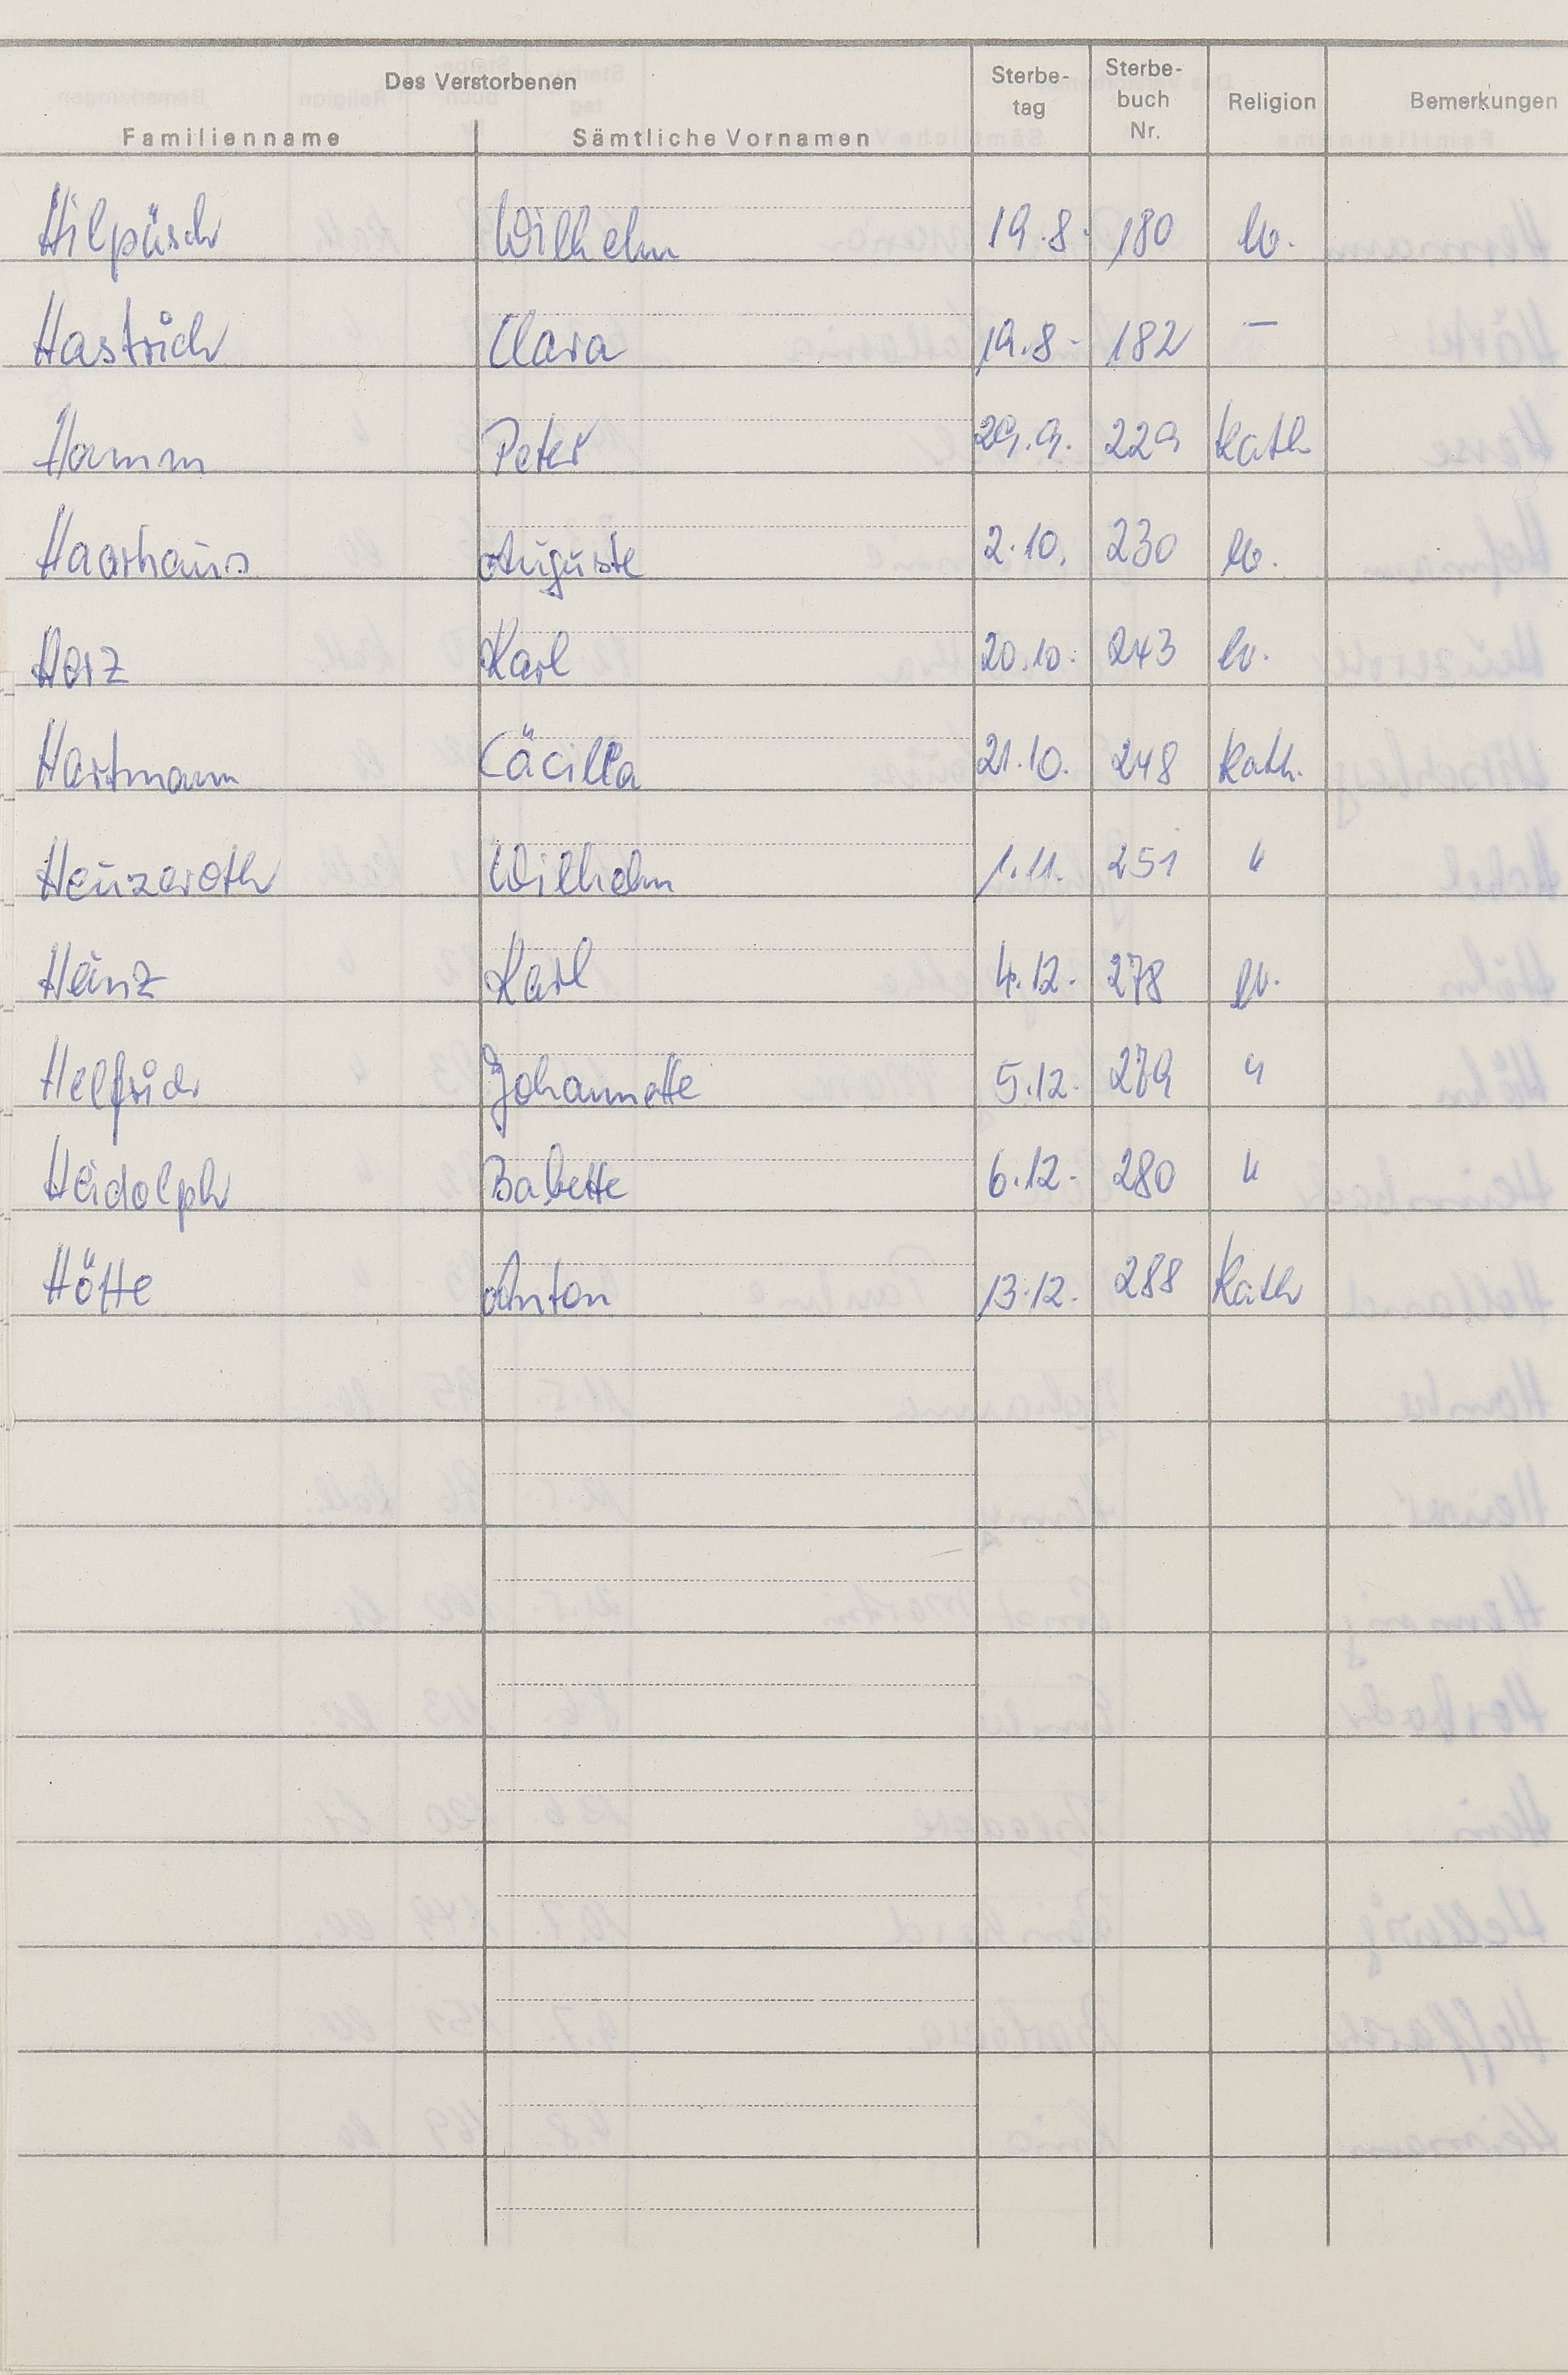 Des Verstorbenen Sterbe- Sterbe-
tag buch Religion Bemerkungen
Familienname Sämtliche Vornamen Nr.
Hilpüsch Wilhelm 19.8. 180 ev.
Hastrich Clara 19.8. 182 —
Hamm Peter 29.9. 229 Kath
Haarhaus Auguste 2.10. 230 ev.
Herz Karl 20.10. 243 ev.
Hartmann Cäcilia 21.10. 248 Kath.
Heuzeroth Wilhelm 1.11. 251 "
Karl 4.12. 278 ev.
Helfrich Johannette 5.12. 279 "
Heidolph Babette 6.12. 280 "
Hötte Anton 13.12. 288 Kath